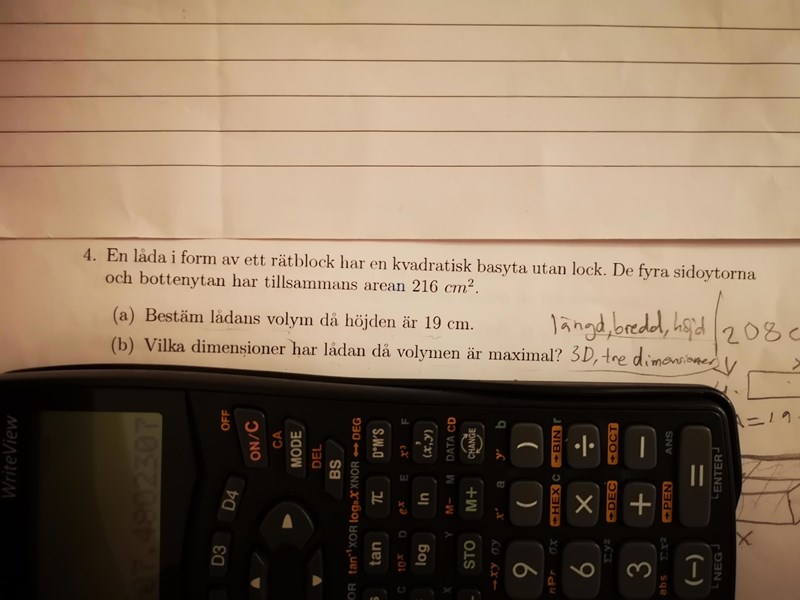 4. En låda i form av ett rätblock har en kvadratisk basyta utan lock. De fyra sidoytorna
och bottenytan har tillsammans arean 216 cm².
(a) Bestäm lådans volym då höjden är 19 cm.
längd, bredd, höjd
208
(b) Vilka dimensioner har lådan då volymen är maximal?
3D, tre dimensioner
=19
x
WriteView
OFF
ON/C
CA
MODE
DEL
BS
D4
D3
DEG
D°M'S
π
tan
tan⁻¹
XOR
log
XNOR
F
(x,y)
E
ln
D
log
10ˣ
eˣ
C
DATA CD
CHANGE
M
M+
M−
Y
STO
X
b
y'
)
a
x'
(
9
r
→BIN
÷
→HEX
×
6
nPr
→OCT
−
→DEC
+
3
abs
ANS
→PEN
=
ENTER
(−)
NEG